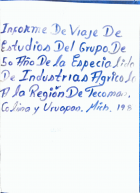 Informe De Viaje De
Estudios Del Grupo De
5o Año De la Especialida
De Industrias Agricola
A la Región De Tecoman,
Colima y Uruapan, Mich. 198